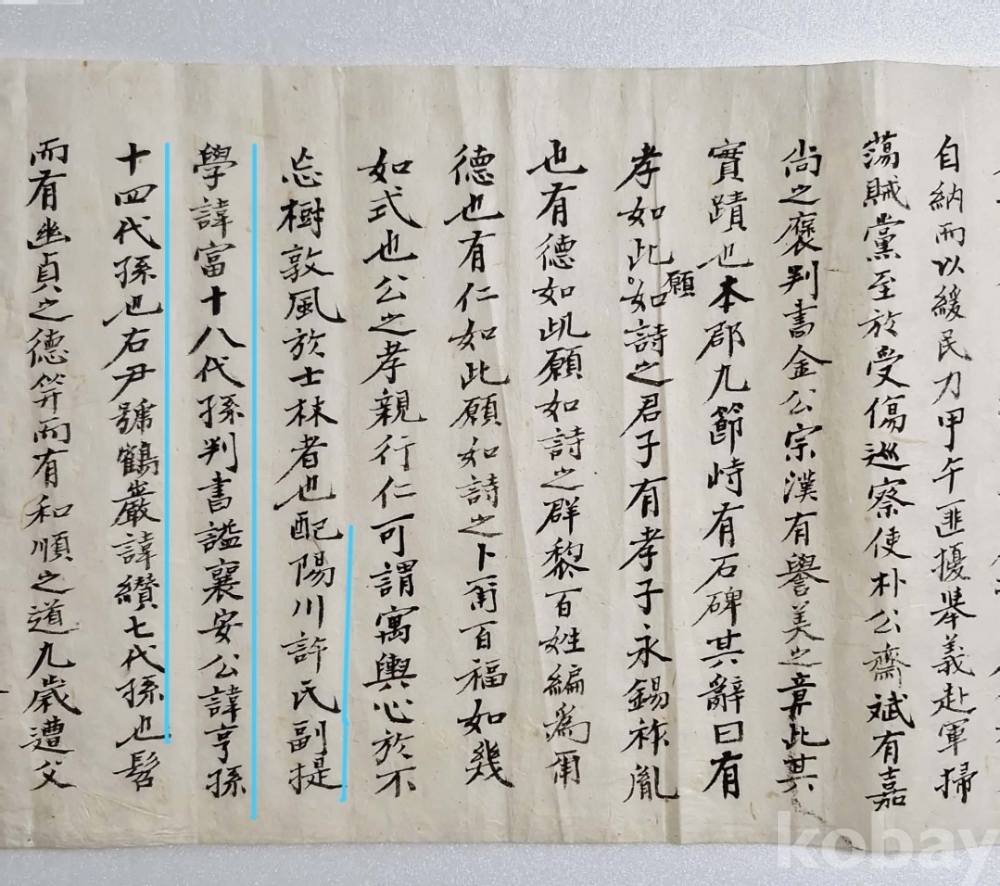 自納而以緩民力甲午匪擾擧義赴軍掃
蕩賊黨至於受傷巡察使朴公齋斌有嘉
尙之褒判書金公宗漢有譽美之章此其
實蹟也本郡九節峙有石碑其辭曰有
孝如此願如詩之君子有孝子永錫祚胤
也有德如此願如詩之群黎百姓編爲爾
德也有仁如此願如詩之卜爾百福如幾
如式也公之孝親行仁可謂寓輿心於不
忘樹敦風於士林者也配陽川許氏副提
學諱富十八代孫判書謚襄安公諱亨孫
十四代孫也右尹號鶴巖諱纘七代孫也髫
而有幽貞之德筓而有和順之道九歲遭父
kobay